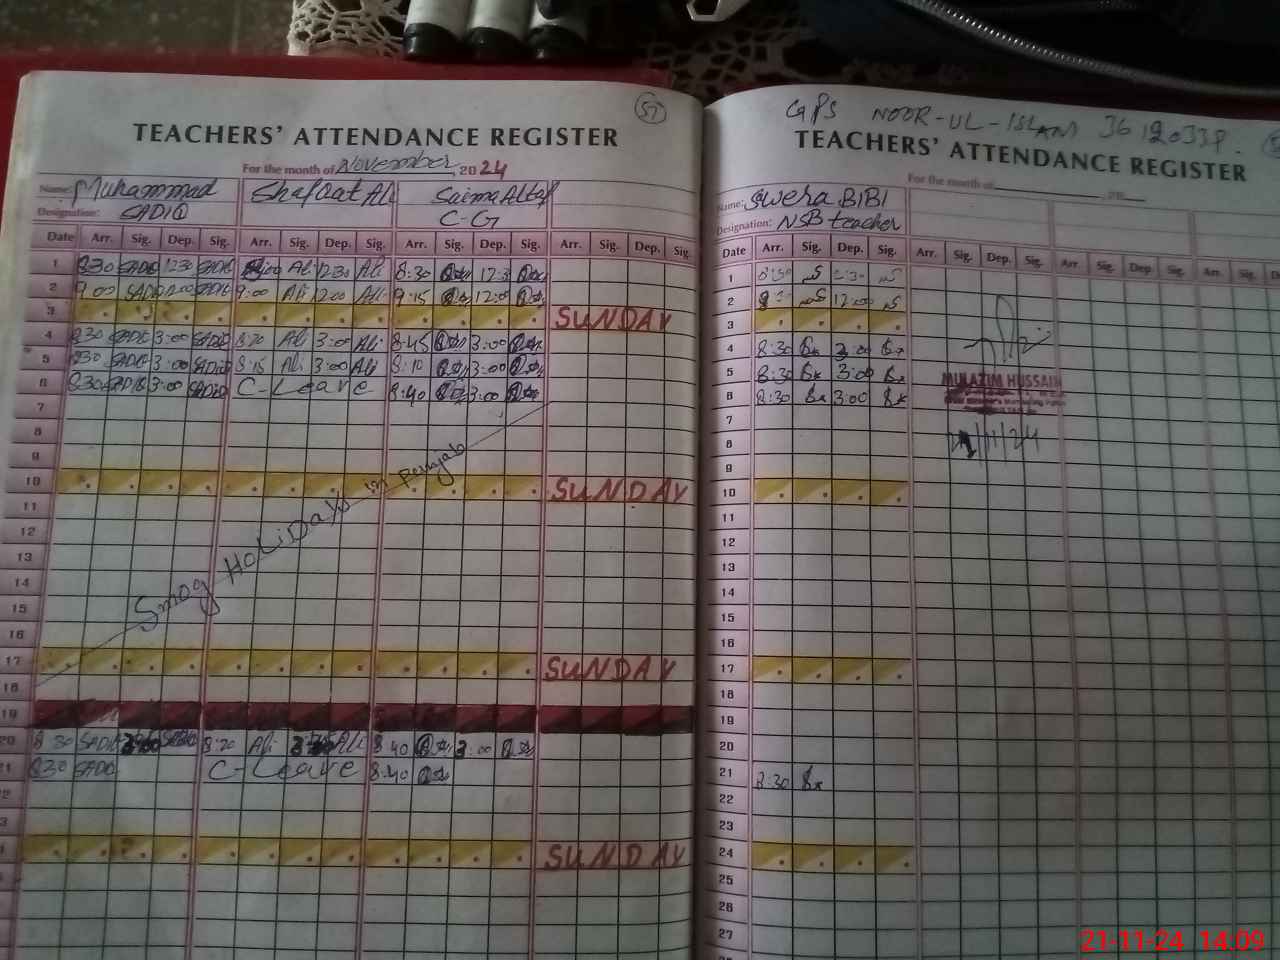 57
TEACHERS' ATTENDANCE REGISTER
For the month of November, 2024
Name: Muhammad Shafqat Ali Saima Altaf
Designation: SADIQ C-G
Date Arr. Sig. Dep. Sig. Arr. Sig. Dep. Sig. Arr. Sig. Dep. Sig. Arr. Sig. Dep. Sig.
1 8:30 SADIQ 12:30 SADIQ Ali 12:30 Ali 8:30 12:3
2 9:00 SADIQ 12:00 SADIQ 9:00 Ali 12:00 Ali 9:15 12:00
3 SUNDAY
4 8:30 SADIQ 3:00 SADIQ 8:20 Ali 3:00 Ali 8:45 3:00
5 8:30 SADIQ 3:00 SADIQ 8:15 Ali 3:00 Ali 8:10 3:00
6 8:30 SADIQ 3:00 SADIQ C-Leave 8:40 3:00
7
8
9
10 SUNDAY
11
12
13
14
15
16
Smog HoLiDays in punjab
17 SUNDAY
18
19
20 8:30 SADIQ SADIQ 8:20 Ali Ali 8:40 3:00
21 8:30 SADIQ C-Leave 8:40
22
23
24 SUNDAY
GPS NOOR-UL-ISLAM 36120338.
TEACHERS' ATTENDANCE REGISTER
For the month of , 20
Name: Swera BiBi
Designation: NSB teacher
Date Arr. Sig. Dep. Sig. Arr. Sig. Dep. Sig. Arr. Sig. Dep Sig. Arr. Sig. D
1 8:30
2 12:00
3
4 8:30 3:00
5 8:30 3:00
6 8:30 3:00
MULAZIM HUSSAIN
7
8
21/11/24
9
10
11
12
13
14
15
16
17
18
19
20
21 8:30
22
23
24
25
26
27
21-11-24 14:09